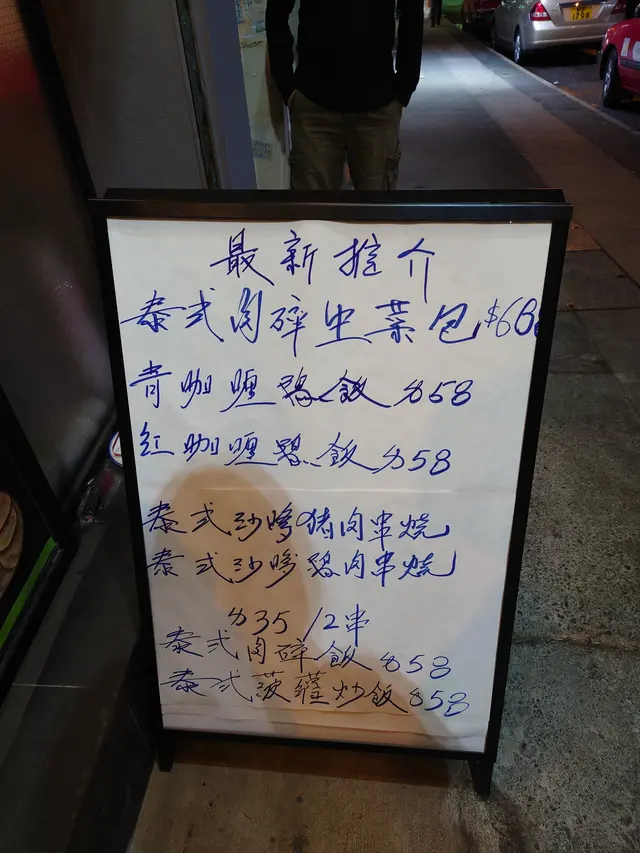 最新推介
泰式肉碎生菜包$68
青咖喱雞飯$58
紅咖喱雞飯$58
泰式沙嗲猪肉串燒
泰式沙嗲雞肉串燒
$35/2串
泰式肉碎飯$58
泰式菠蘿炒飯$58